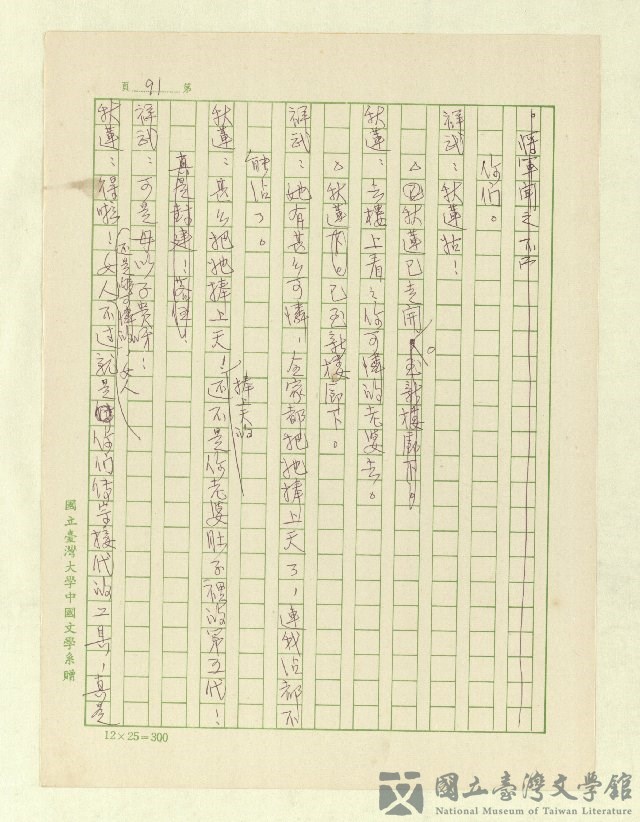 第 91 頁
你們。
祥武：秋蓮姑！
△秋蓮已走開，至新樓廊下。
秋蓮：去樓上看看你可憐的老婆去。
△秋蓮已至新樓廊下。
祥武：她有甚么可憐，全家都把她捧上天了，連我沾都不
能沾了。
秋蓮：甚么把她捧上天！還不是你老婆肚子裡的第五代！
捧上天的
真是封建！落伍！
祥武：可是母以子貴呀！
還是可憐的女人
秋蓮：得啦！女人不過就是你們傳宗接代的工具，真是
國立臺灣大學中國文學系贈
12×25=300
國立臺灣文學館
National Museum of Taiwan Literature